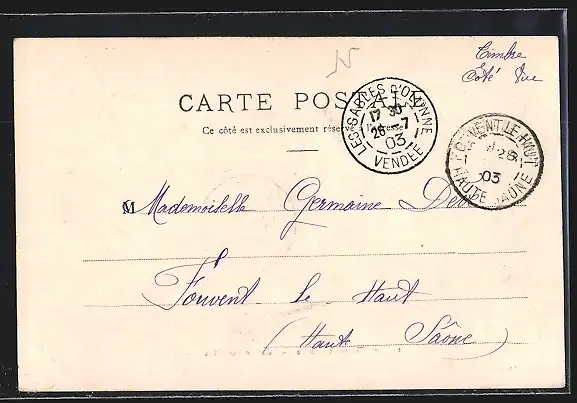 Timbre
Côté Vue
CARTE POSTALE
Ce côté est exclusivement réservé à l'adresse
LES SABLES D'OLONNE
17 30
26 -7
03
VENDÉE
FOUVENT-LE-HAUT
28
03
HAUTE SAÔNE
M Mademoiselle Germaine
Fouvent - le - Haut
(Haute Saône)